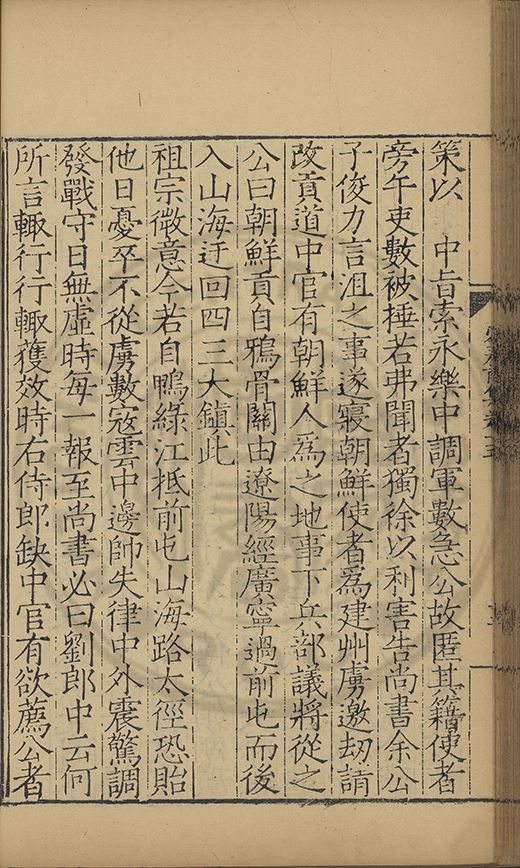 策以　中旨索永樂中調軍數急公故匿其籍使者
旁午吏數被捶若弗聞者獨徐以利害告尚書余公
子俊力言沮之事遂寢朝鮮使者爲建州虜邀刼請
改貢道中官有朝鮮人爲之地事下兵部議將從之
公曰朝鮮貢自鴉骨關由遼陽經廣寧過前屯而後
入山海迂回四三大鎮此
祖宗微意今若自鴨綠江抵前屯山海路太徑恐貽
他日憂卒不從虜數寇雲中邊帥失律中外震驚調
發戰守日無虛時每一報至尚書必曰劉郎中云何
所言輒行行輒獲效時右侍郎缺中官有欲薦公者